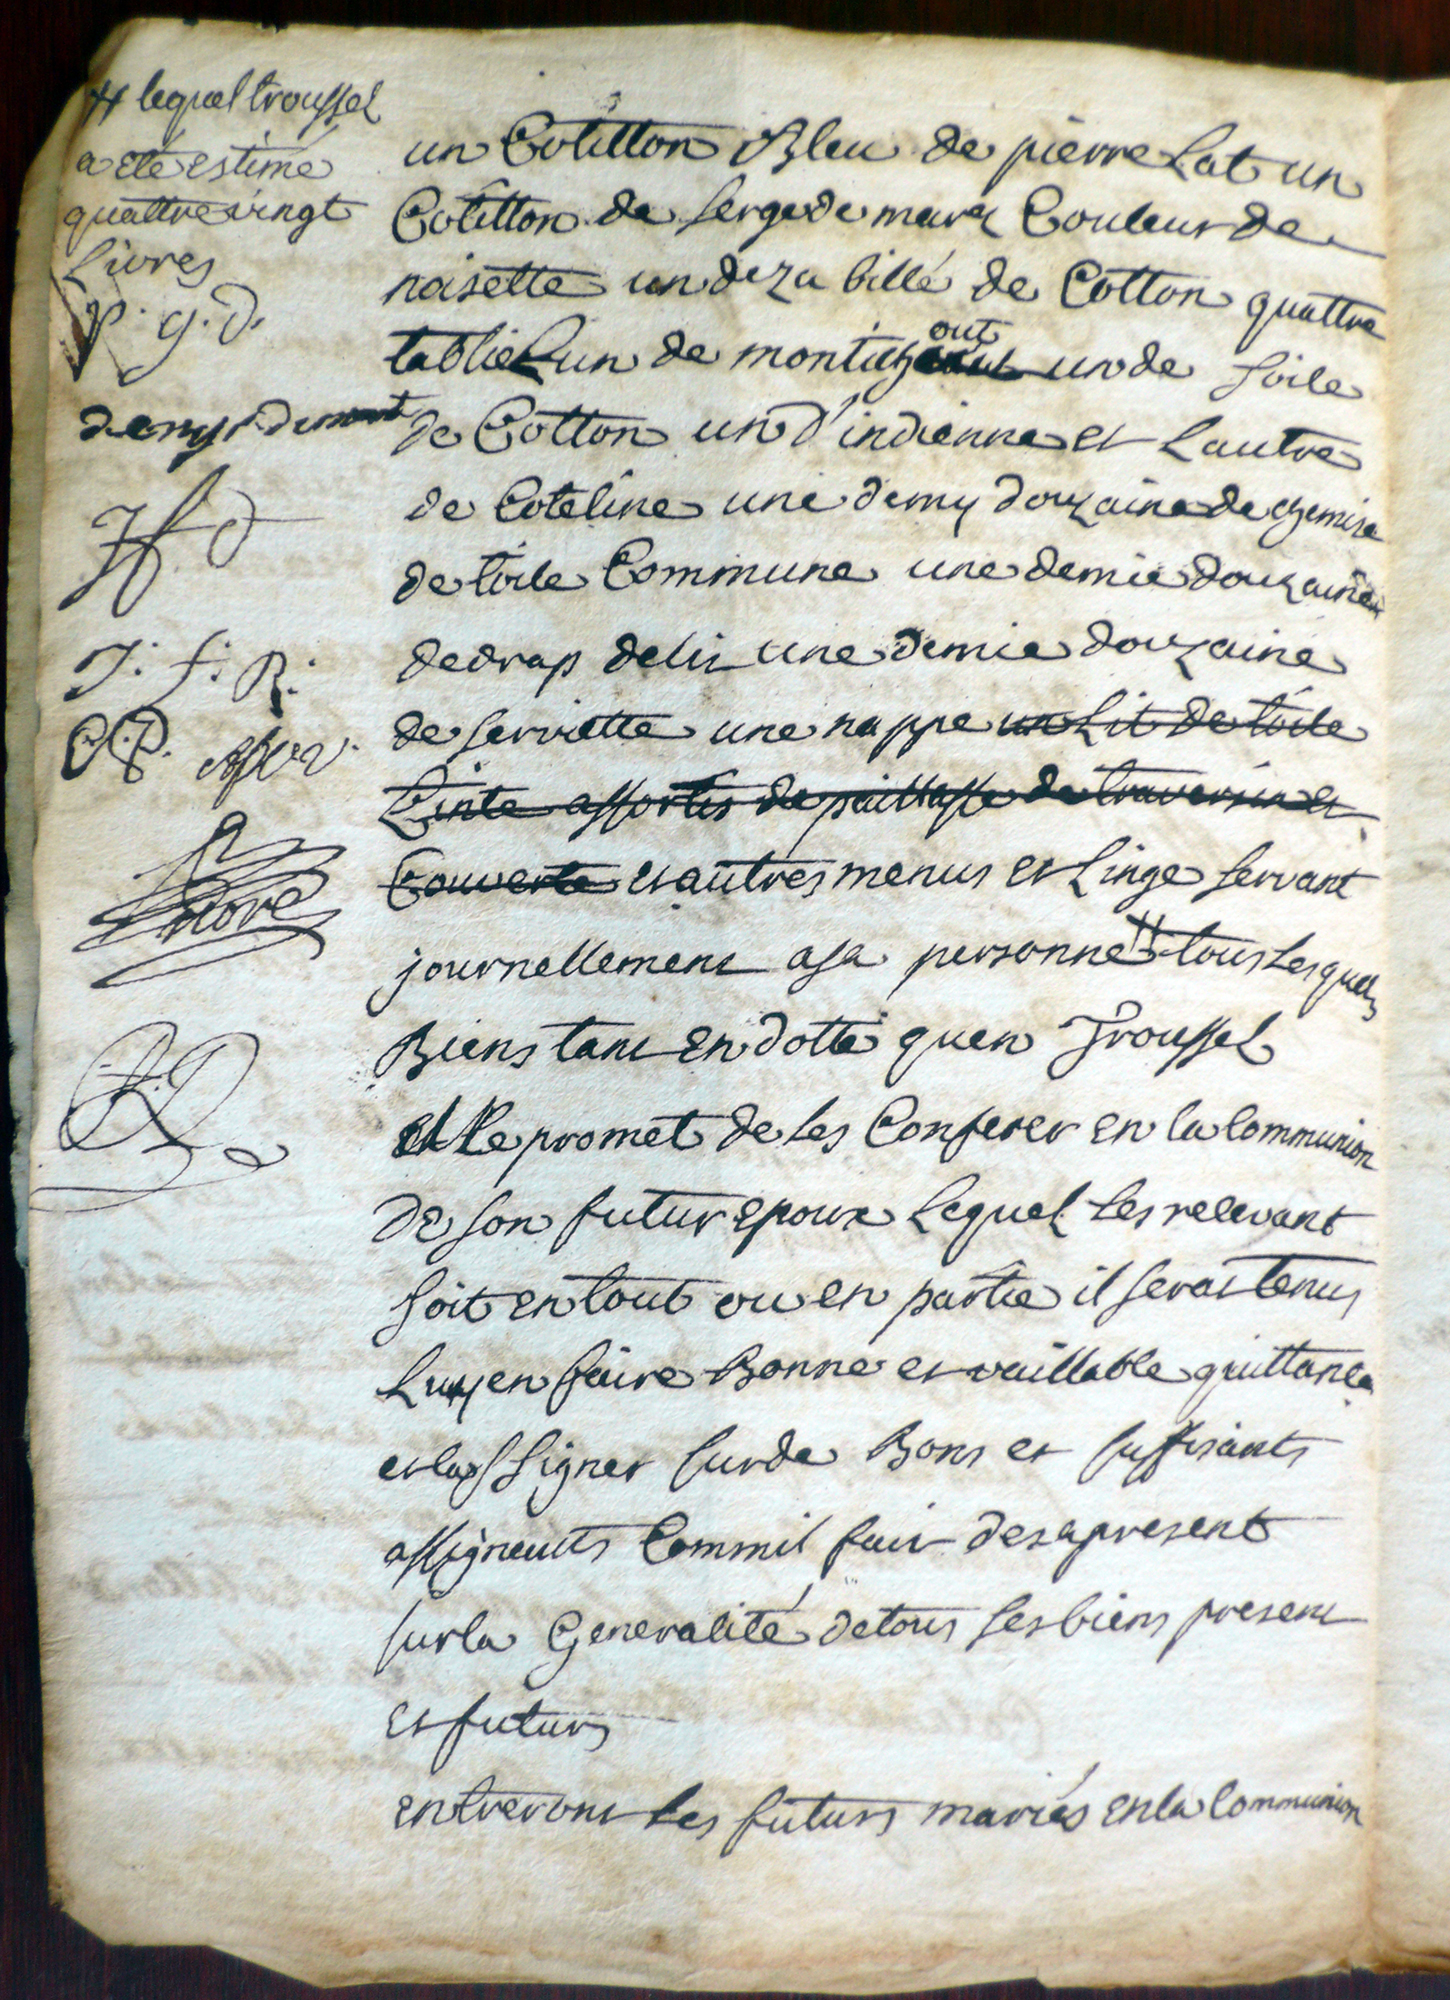 # lequel troussel
a été estimé
quattre vingt
Livres
P. G. D.
J. f. R.
un Cotillon Bleu de pierre Lat un
Cotillon de serge de
Couleur de
noisette un dezabillé de Cotton quattre
tablier un de un de soile
out
de Cotton un d'indienne et Lautre
de Coteline une demy douzaine de chemise
de toile Commune une demie douzaine
de drap de lit une demie douzaine
de serviette une nappe un Lit de toile
Teinte assortis de paillasse de traversin et
Couverte et autres menus et Linge servant
journellement a sa personne # tous Lesquels
Biens tant en dotte quen Troussel
elle promet de les Conferer en la Communion
de son futur epoux Lequel Les recevant
soit en tout ou en partie il seras tenus
Luy en faire Bonne et vaillable quittance
et lassigner sur de Bons et suffisants
assignauts Comm il fait des apresent
sur la Generalité de tous ses biens present
et futurs
entreront Les futurs mariés en la Communion